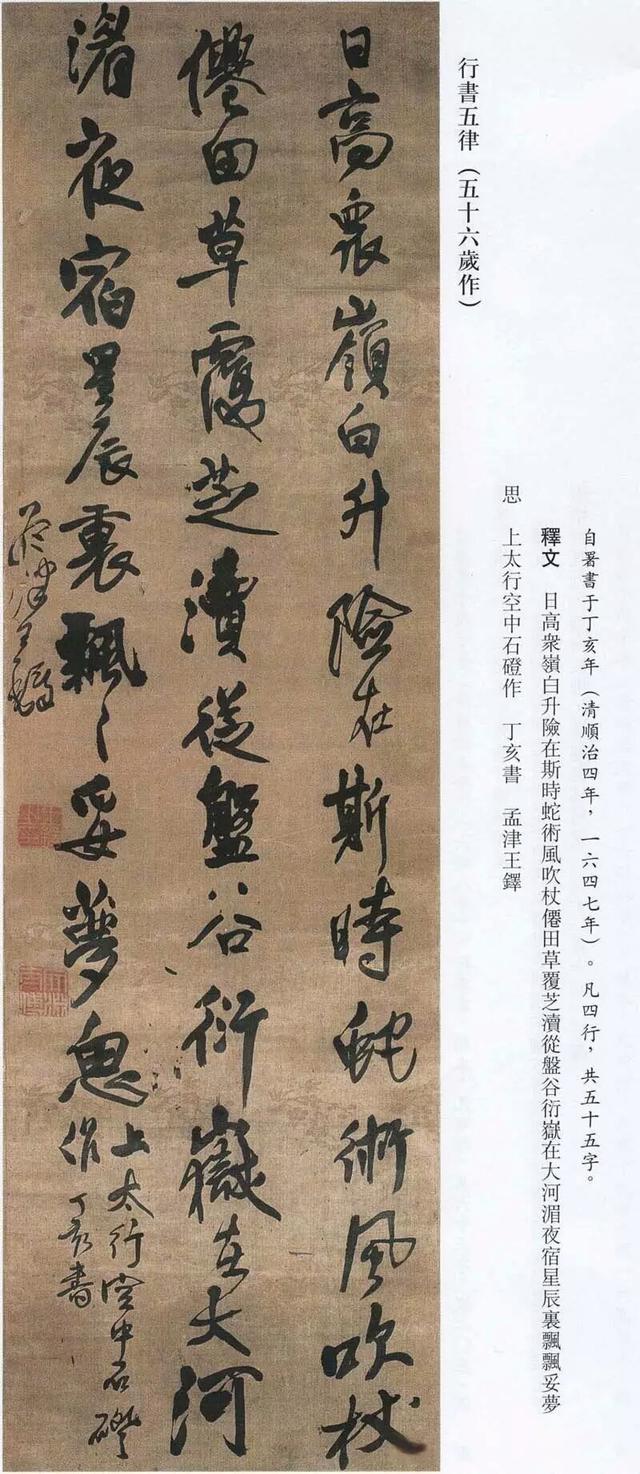 行書五律（五十六歲作）
自署書于丁亥年（清順治四年，一六四七年）。凡四行，共五十五字。
釋文　日高衆嶺白升險在斯時蛇術風吹杖僊田草覆芝瀆從盤谷衍嶽在大河湄夜宿星辰裏飄飄妥夢
思　上太行空中石磴作　丁亥書　孟津王鐸
日高衆嶺白升險在斯時蛇術風吹杖
僊田草覆芝瀆從盤谷衍嶽在大河
湄夜宿星辰裏飄〻妥夢思上太行空中石磴
作丁亥書
孟津王鐸